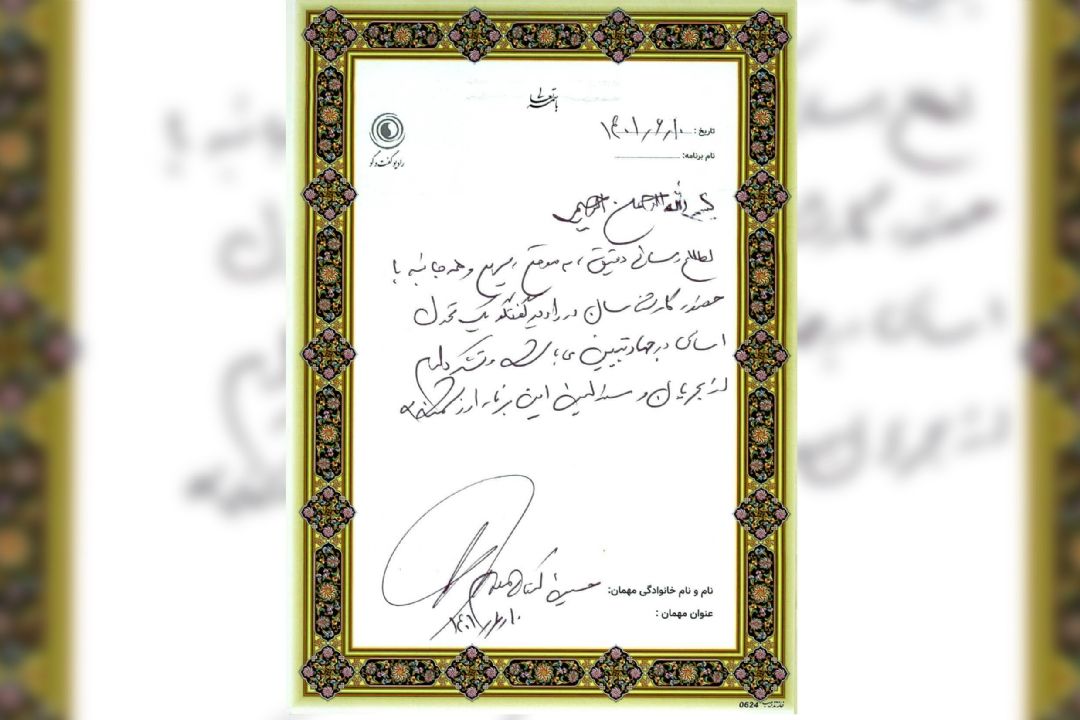 باسمه تعالی
تاریخ: ۱۴۰۱/۶/۱۰
نام برنامه:
رادیو گفت و گو
بسم الله الرحمن الرحیم
اطلاع رسانی دقیق، به موقع، سریع و همه جانبه با
حضور کارشناسان در رادیو گفتگو یک تحول
اساسی در جهاد تبیین می باشد و تشکر دارم
از مجریان و مسئولین این برنامه ارزشمند
نام و نام خانوادگی مهمان: حسین
عنوان مهمان :
۱۴۰۱/۶/۱۰
0624